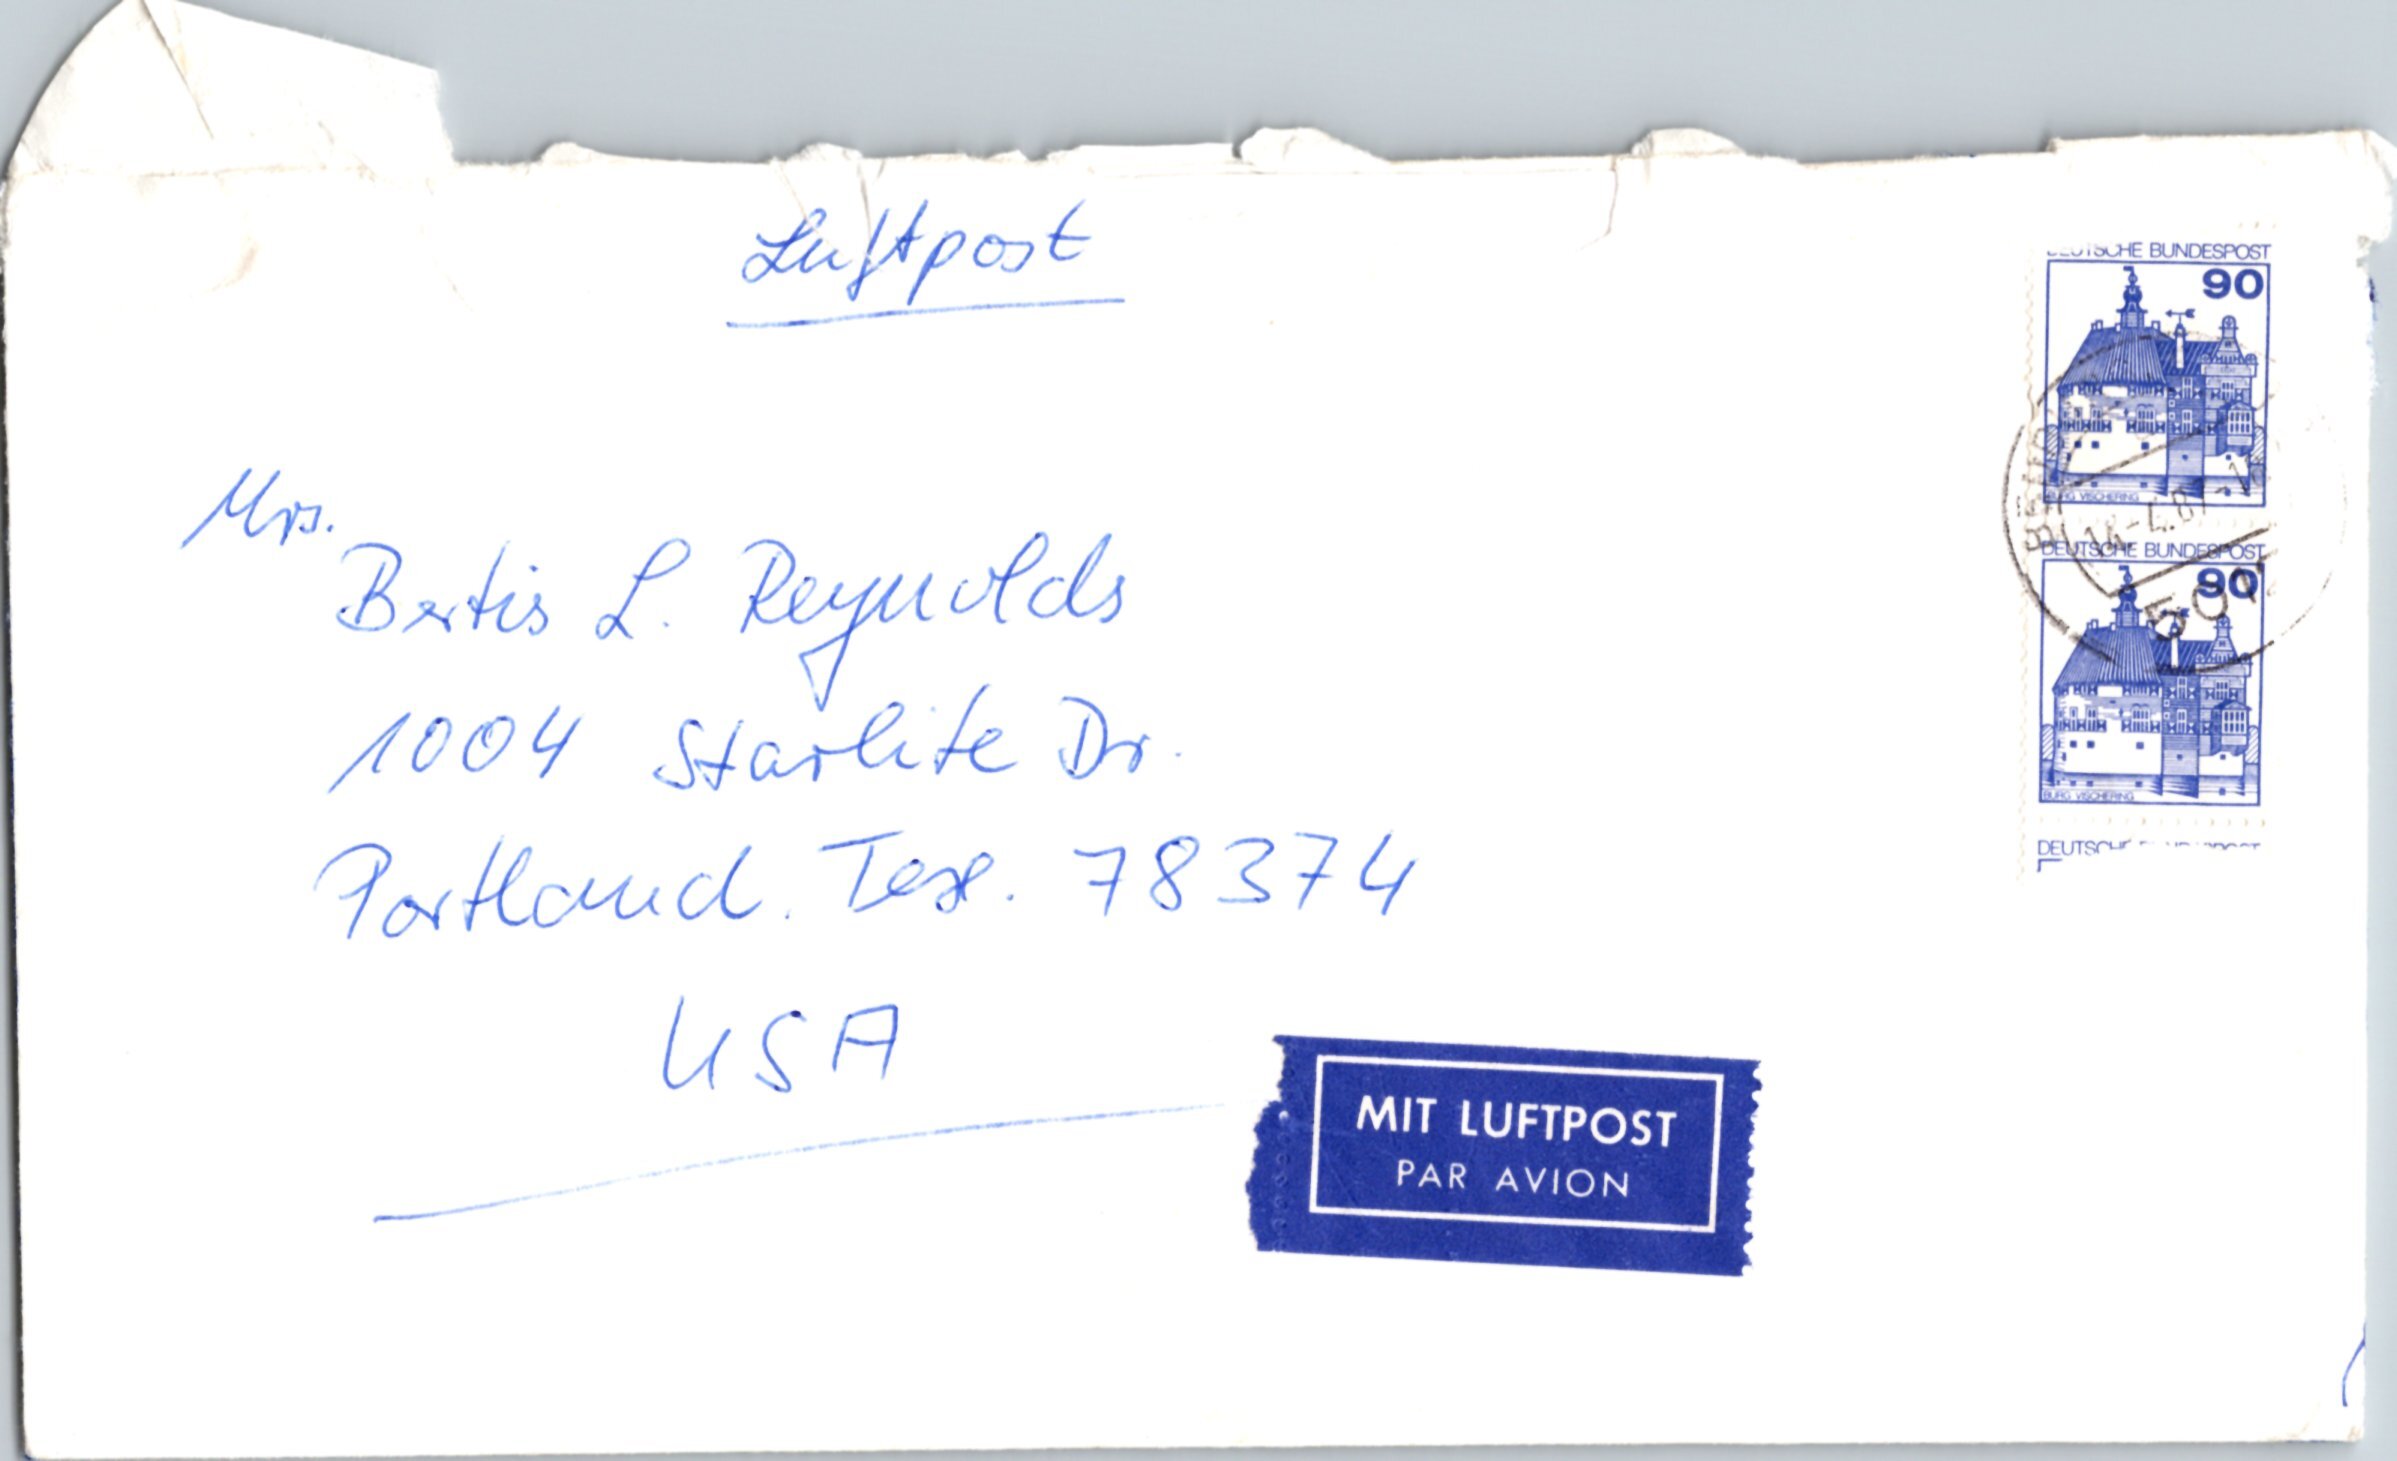 Luftpost
Mrs.
Bertis L. Reynolds
1004 Starlite Dr.
Portland. Tex. 78374
USA
MIT LUFTPOST
PAR AVION
DEUTSCHE BUNDESPOST
90
BURG VISCHERING
DEUTSCHE BUNDESPOST
90
BURG VISCHERING
DEUTSCHE BUNDESPOST